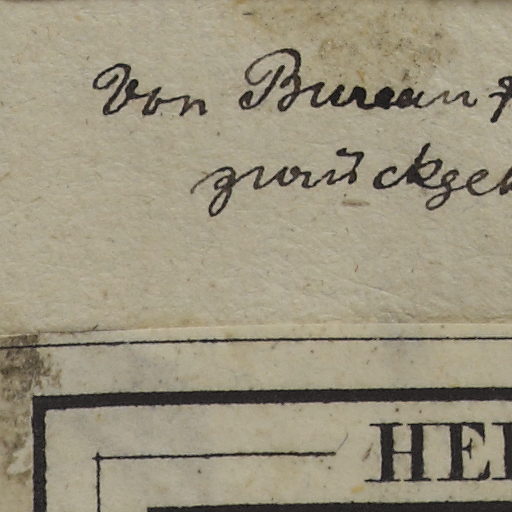 Von Bureau
zurückge
HE